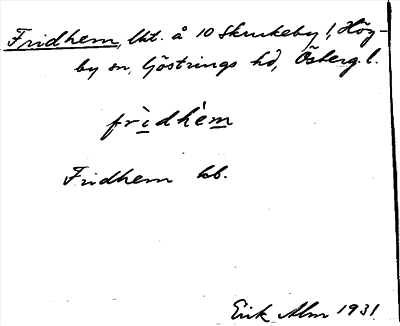 Fridhem, lht. å 10 Skrukeby !, Hög-
by sn, Göstrings hd, Österg. l.
frìdhèm
Fridhem kb.
Erik Alm 1931